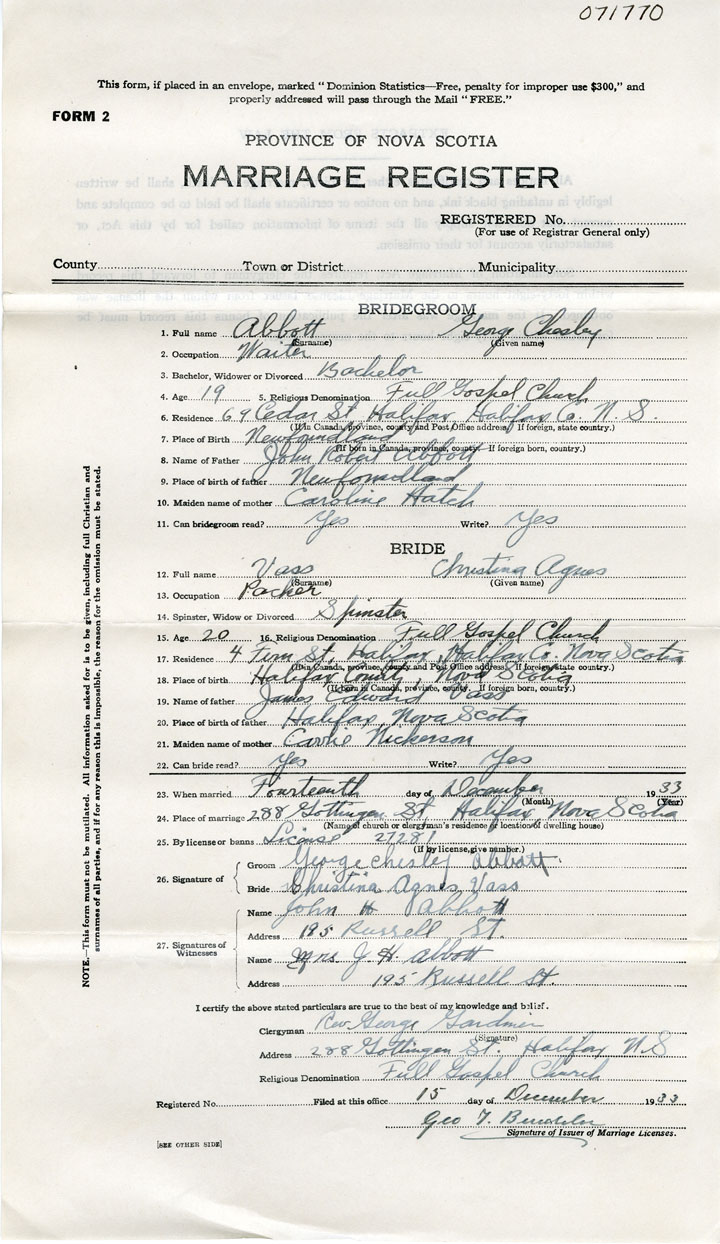 071770
This form, if placed in an envelope, marked "Dominion Statistics—Free, penalty for improper use $300," and
properly addressed will pass through the Mail "FREE."
FORM 2
PROVINCE OF NOVA SCOTIA
MARRIAGE REGISTER
REGISTERED No.
(For use of Registrar General only)
County Town or District Municipality
BRIDEGROOM
1. Full name Abbott George Chesley
(Surname) (Given name)
2. Occupation Waiter
3. Bachelor, Widower or Divorced Bachelor
4. Age 19 5. Religious Denomination Full Gospel Church
6. Residence 69 Cedar St Halifax, Halifax Co. N.S.
(If in Canada, province, county and Post Office address. If foreign, state country.)
7. Place of Birth Newfoundland
(If born in Canada, province, county. If foreign born, country.)
8. Name of Father John Robert Abbott
9. Place of birth of father Newfoundland
10. Maiden name of mother Caroline Hatch
11. Can bridegroom read? Yes Write? Yes
BRIDE
12. Full name Vass Christina Agnes
(Surname) (Given name)
13. Occupation Packer
14. Spinster, Widow or Divorced Spinster
15. Age 20 16. Religious Denomination Full Gospel Church
17. Residence 4 St, Halifax, Halifax Co. Nova Scotia
(If in Canada, province, county and Post Office address. If foreign, state country.)
18. Place of birth Halifax County, Nova Scotia
(If born in Canada, province, county. If foreign born, country.)
19. Name of father James Edward Vass
20. Place of birth of father Halifax, Nova Scotia
21. Maiden name of mother Carrie Nickerson
22. Can bride read? Yes Write? Yes
23. When married Fourteenth day of December 1933
(Month) (Year)
24. Place of marriage 288 Gottingen St Halifax, Nova Scotia
(Name of church or clergyman's residence or location of dwelling house)
25. By license or banns License 27281
(If by license, give number.)
26. Signature of
Groom George Chesley Abbott
Bride Christina Agnes Vass
27. Signatures of Witnesses
Name John H Abbott
Address 195 Russell St.
Name Mrs J. H. Abbott
Address 195 Russell St.
I certify the above stated particulars are true to the best of my knowledge and belief.
Clergyman Rev George Gardiner
(Signature)
Address 288 Gottingen St. Halifax N.S
Religious Denomination Full Gospel Church
Registered No. Filed at this office 15 day of December 1933
Geo T.
Signature of Issuer of Marriage Licenses.
[SEE OTHER SIDE]
NOTE.—This form must not be mutilated. All information asked for is to be given, including full Christian and
surnames of all parties, and if for any reason this is impossible, the reason for the omission must be stated.